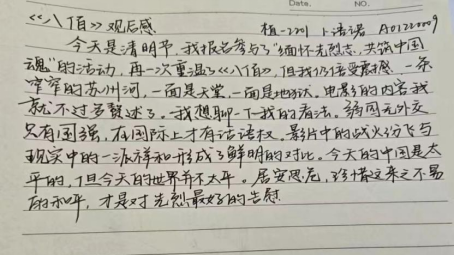 Date. NO.
《八佰》观后感 植-2201 卜语诺 A01220009
今天是清明节,我报名参与了“缅怀先烈志,共筑中国
魂”的活动,再一次重温了《八佰》,但我仍倍受震撼。一条
窄窄的苏州河,一面是天堂,一面是地狱。电影的内容我
就不过多赘述了。我想聊一下我的看法。弱国无外交
只有国强,在国际上才有话语权。影片中的战火纷飞与
现实中的一派祥和形成了鲜明的对比。今天的中国是太
平的,但今天的世界并不太平。居安思危,珍惜这来之不易
的和平,才是对先烈最好的告慰